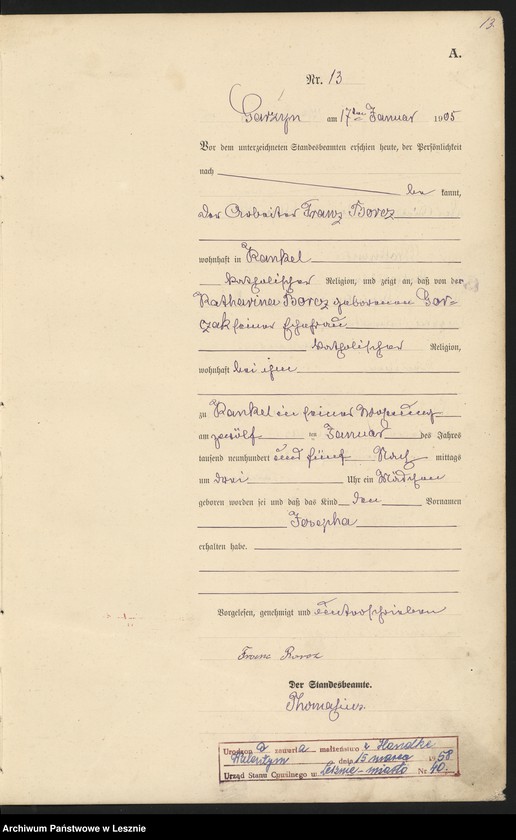 13.
A.
Nr. 13
Garzyn am 17ten Januar 1905
Vor dem unterzeichneten Standesbeamten erschien heute, der Persönlichkeit
nach be kannt,
der Arbeiter Franz Borcz
wohnhaft in Kankel
katholischer Religion, und zeigt an, daß von der
Katharina Borcz geborenen Gor-
czak seiner Ehefrau
katholischer Religion,
wohnhaft bei ihm
zu Kankel in seiner Wohnung
am zwölf ten Januar des Jahres
tausend neunhundert und fünf Nach mittags
um drei Uhr ein Mädchen
geboren worden sei und daß das Kind den Vornamen
Josepha
erhalten habe.
Vorgelesen, genehmigt und unterschrieben
Franz Borcz
Der Standesbeamte.
Thomasius.
Urodzon a zawarła małżeństwo z Handke
Walentym dnia 15 marca 1958
Urząd Stanu Cywilnego w Lesznie-miasto Nr 40
Archiwum Państwowe w Lesznie